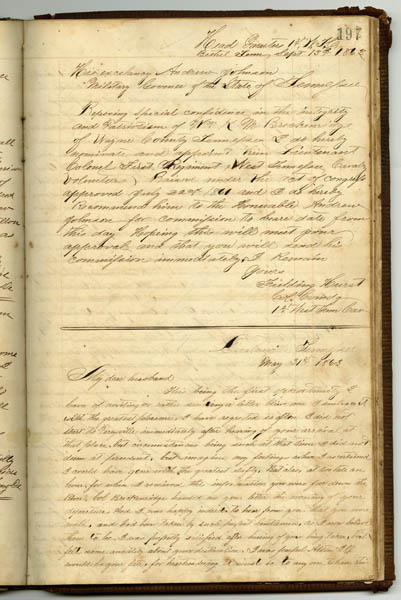 197
Head Quarters 1st W. T. C.
Bethel Tenn, Sept 13th 1862
His excellency Andrew Johnson
Military Governor of the State of Tennessee
Reposing Special confidence in the integrity
and Patriotism of R. M. Breckenridge
of Wayne County Tennessee I do hereby
nominate and appoint him Lieutenant
Colonel First Regiment West Tennessee Cavalry
Volunteers under the Act of Congress
approved July 22nd 1861 and I do hereby
Recommend him to the Honorable Andrew
Johnson for commission to bear date from
this day Hoping this will meet your
approval and that you will send his
commission immediately I Remain
Yours
Fielding Hurst
Col Comdg
1st West Tenn Cav
Tennessee
May 21st 1863
My dear husband
This being the first opportunity I
have of writing or rather sending a letter I embrace it
with the greatest pleasure I have regretted so often I did not
start to immediately after hearing of your arrival at
that place, but circumstances being such at that time I did not
deem it prudent, but imagine my feelings when I ascertained
I could have gone with the greatest safety. But alas, it too late an
hour, for when I received this information you were far down the
Col Breckenridge handed me your letter the evening of your
departure, and I was happy indeed to hear from you that you were
well, and had been taken by such perfect gentlemen as I now believe
them to be. I was perfectly satisfied after hearing of your being taken, but
felt some anxiety about your destination.